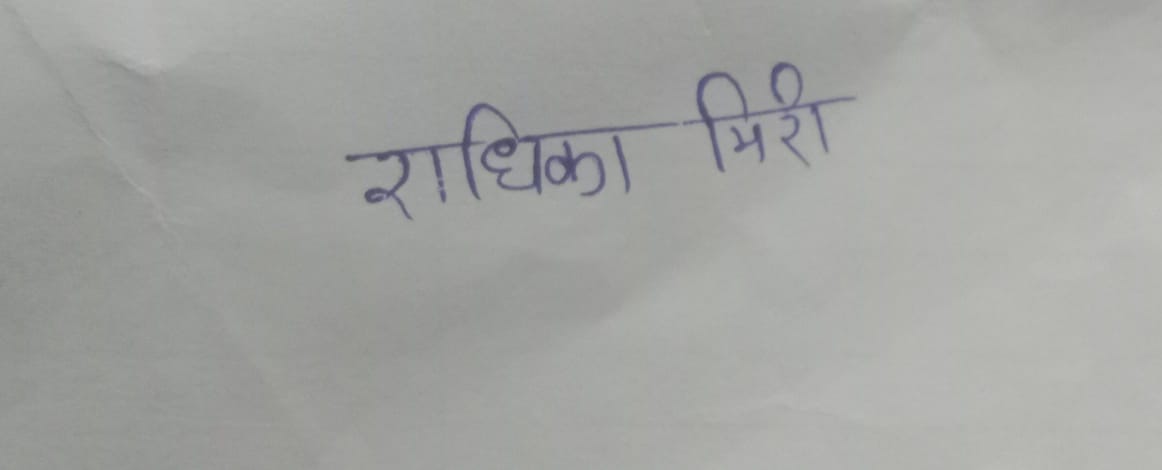 राधिका मिरी